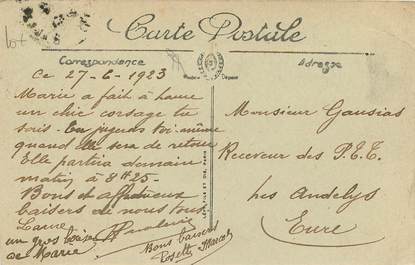 Carte Postale
Correspondance
Adresse
Ce 27-6-1923
Marie a fait à
un chic corsage tu
sais. En jugeras toi-même
quand elle sera de retour
Elle partira demain
matin à 8h25.
Bons et affectueux
baisers de nous tous
un gros baiser
de Marie
Bons baisers
Monsieur Gausias
Receveur des P.T.T.
Les Andelys
Eure